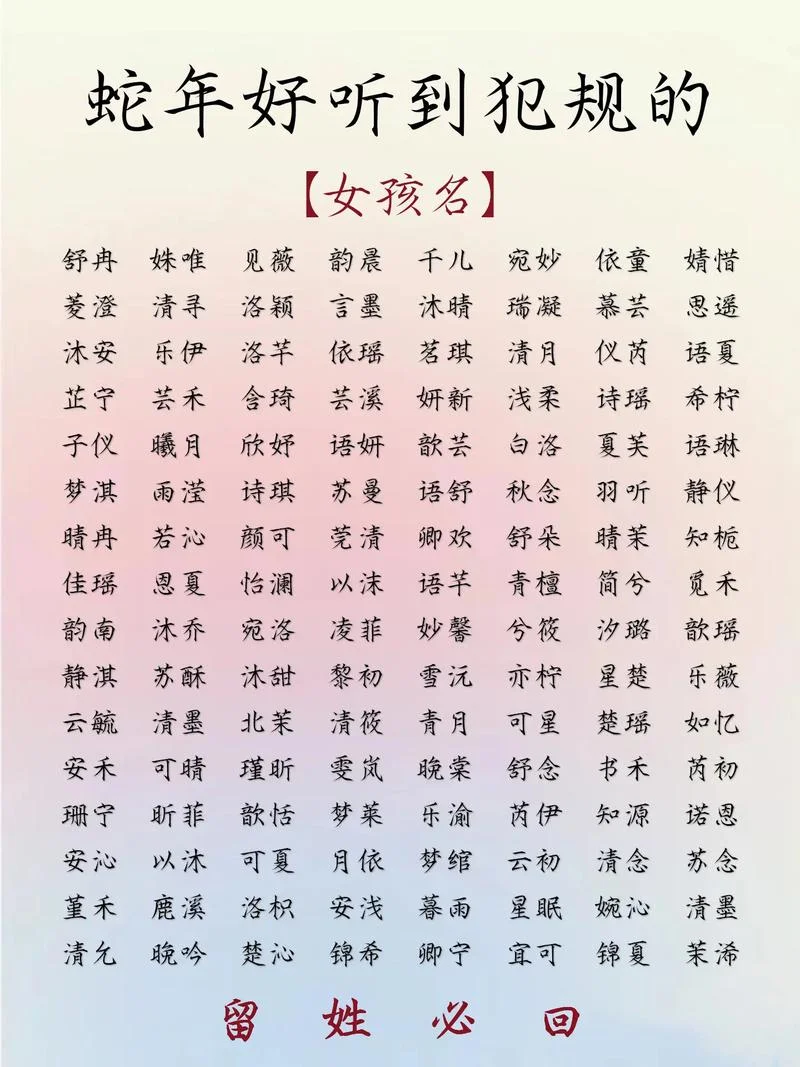 蛇年好听到犯规的
【女孩名】
舒冉 姝唯 见薇 韵晨 千儿 宛妙 依童 婧惜
菱澄 清寻 洛颖 言墨 沐晴 瑞凝 慕芸 思遥
沐安 乐伊 洛芊 依瑶 茗琪 清月 仪芮 语夏
芷宁 芸禾 含琦 芸溪 妍新 浅柔 诗瑶 希柠
子仪 曦月 欣妤 语妍 歆芸 白洛 夏芙 语琳
梦淇 雨滢 诗琪 苏曼 语舒 秋念 羽听 静仪
晴冉 若沁 颜可 莞清 卿欢 舒朵 晴茉 知栀
佳瑶 恩夏 怡澜 以沫 语芊 青檀 简兮 觅禾
韵南 沐乔 宛洛 凌菲 妙馨 兮筱 汐璐 歆瑶
静淇 苏酥 沐甜 黎初 雪沅 亦柠 星楚 乐薇
云毓 清墨 北茉 清筱 青月 可星 楚瑶 如忆
安禾 可晴 瑾昕 雯岚 晚棠 舒念 书禾 芮初
珊宁 昕菲 歆恬 梦莱 乐渝 芮伊 知源 诺恩
安沁 以沐 可夏 月依 梦绾 云初 清念 苏念
堇禾 鹿溪 洛枳 安浅 暮雨 星眠 婉沁 清墨
清允 晚吟 楚沁 锦希 卿宁 宜可 锦夏 茉浠
留姓必回